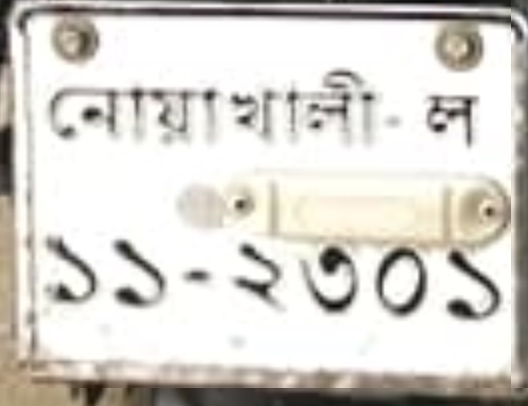 নোয়াখালী-ল
১১-২৩০১